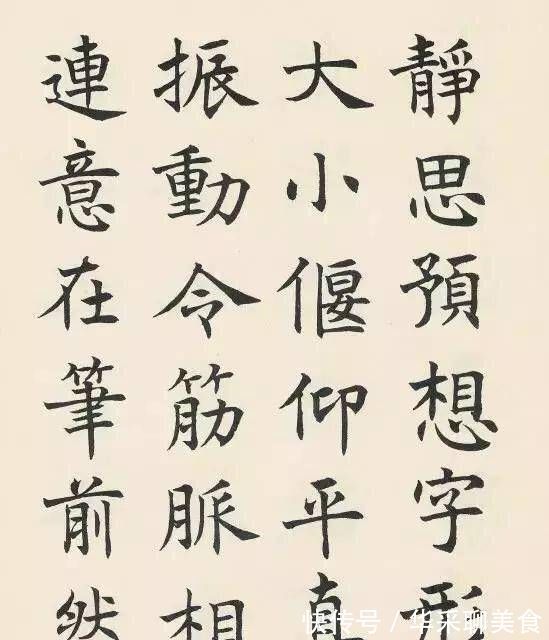 靜思預想字形
大小偃仰平直
振動令筋脈相
連意在筆前然
快传号／华采聊美食